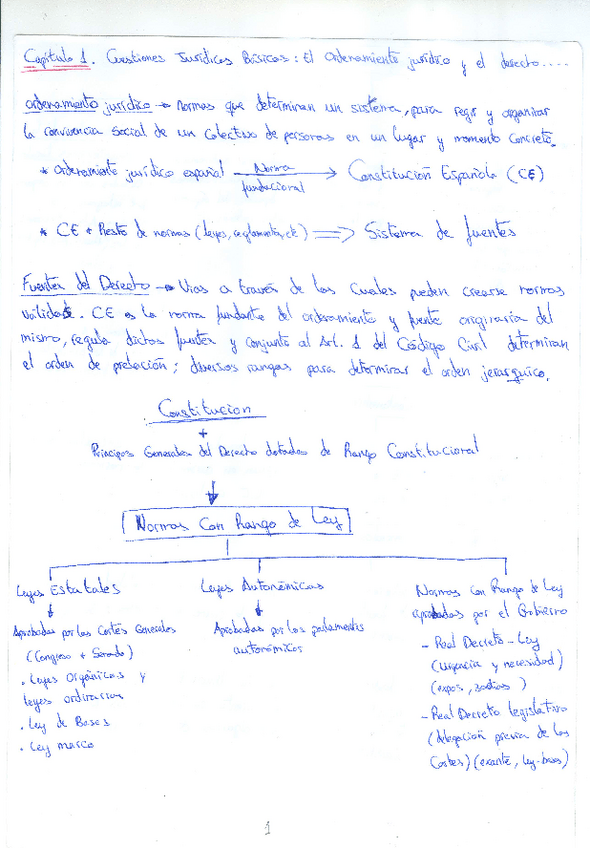 Capítulo 1. Cuestiones Jurídicas Básicas: El Ordenamiento jurídico y el derecho.....
Ordenamiento jurídico → Normas que determinan un sistema, para regir y organizar
la convivencia social de un colectivo de personas en un lugar y momento concreto.
* Ordenamiento jurídico español Norma fundacional → Constitución Española (CE)
* CE + Resto de normas (leyes, reglamentos, etc) ⇒ Sistema de fuentes
Fuentes del Derecho → Vías a través de las cuales pueden crearse normas
válidas. CE es la norma fundante del ordenamiento y fuente originaria del
mismo, regula dichas fuentes y conjunto al Art. 1 del Código Civil determinan
el orden de prelación; diversos rangos para determinar el orden jerarquico.
Constitución
+
Principos Generales del Derecho dotados de Rango Constitucional
↓
Normas Con Rango de Ley
Leyes Estatales
↓
Aprobadas por las Cortes Generales
(Congreso + Senado)
. Leyes Orgánicas y
leyes ordinarias
. Ley de Bases
. Ley marco
Leyes Autonómicas
↓
Aprobadas por los parlamentos
autonómicos
Normas con Rango de Ley
aprobadas por el Gobierno
- Real Decreto-Ley
(Urgencia y necesidad)
(expos, 30 días)
- Real Decreto legislativo
(delegación previa de las
Cortes) (exante, ley-bases)
1